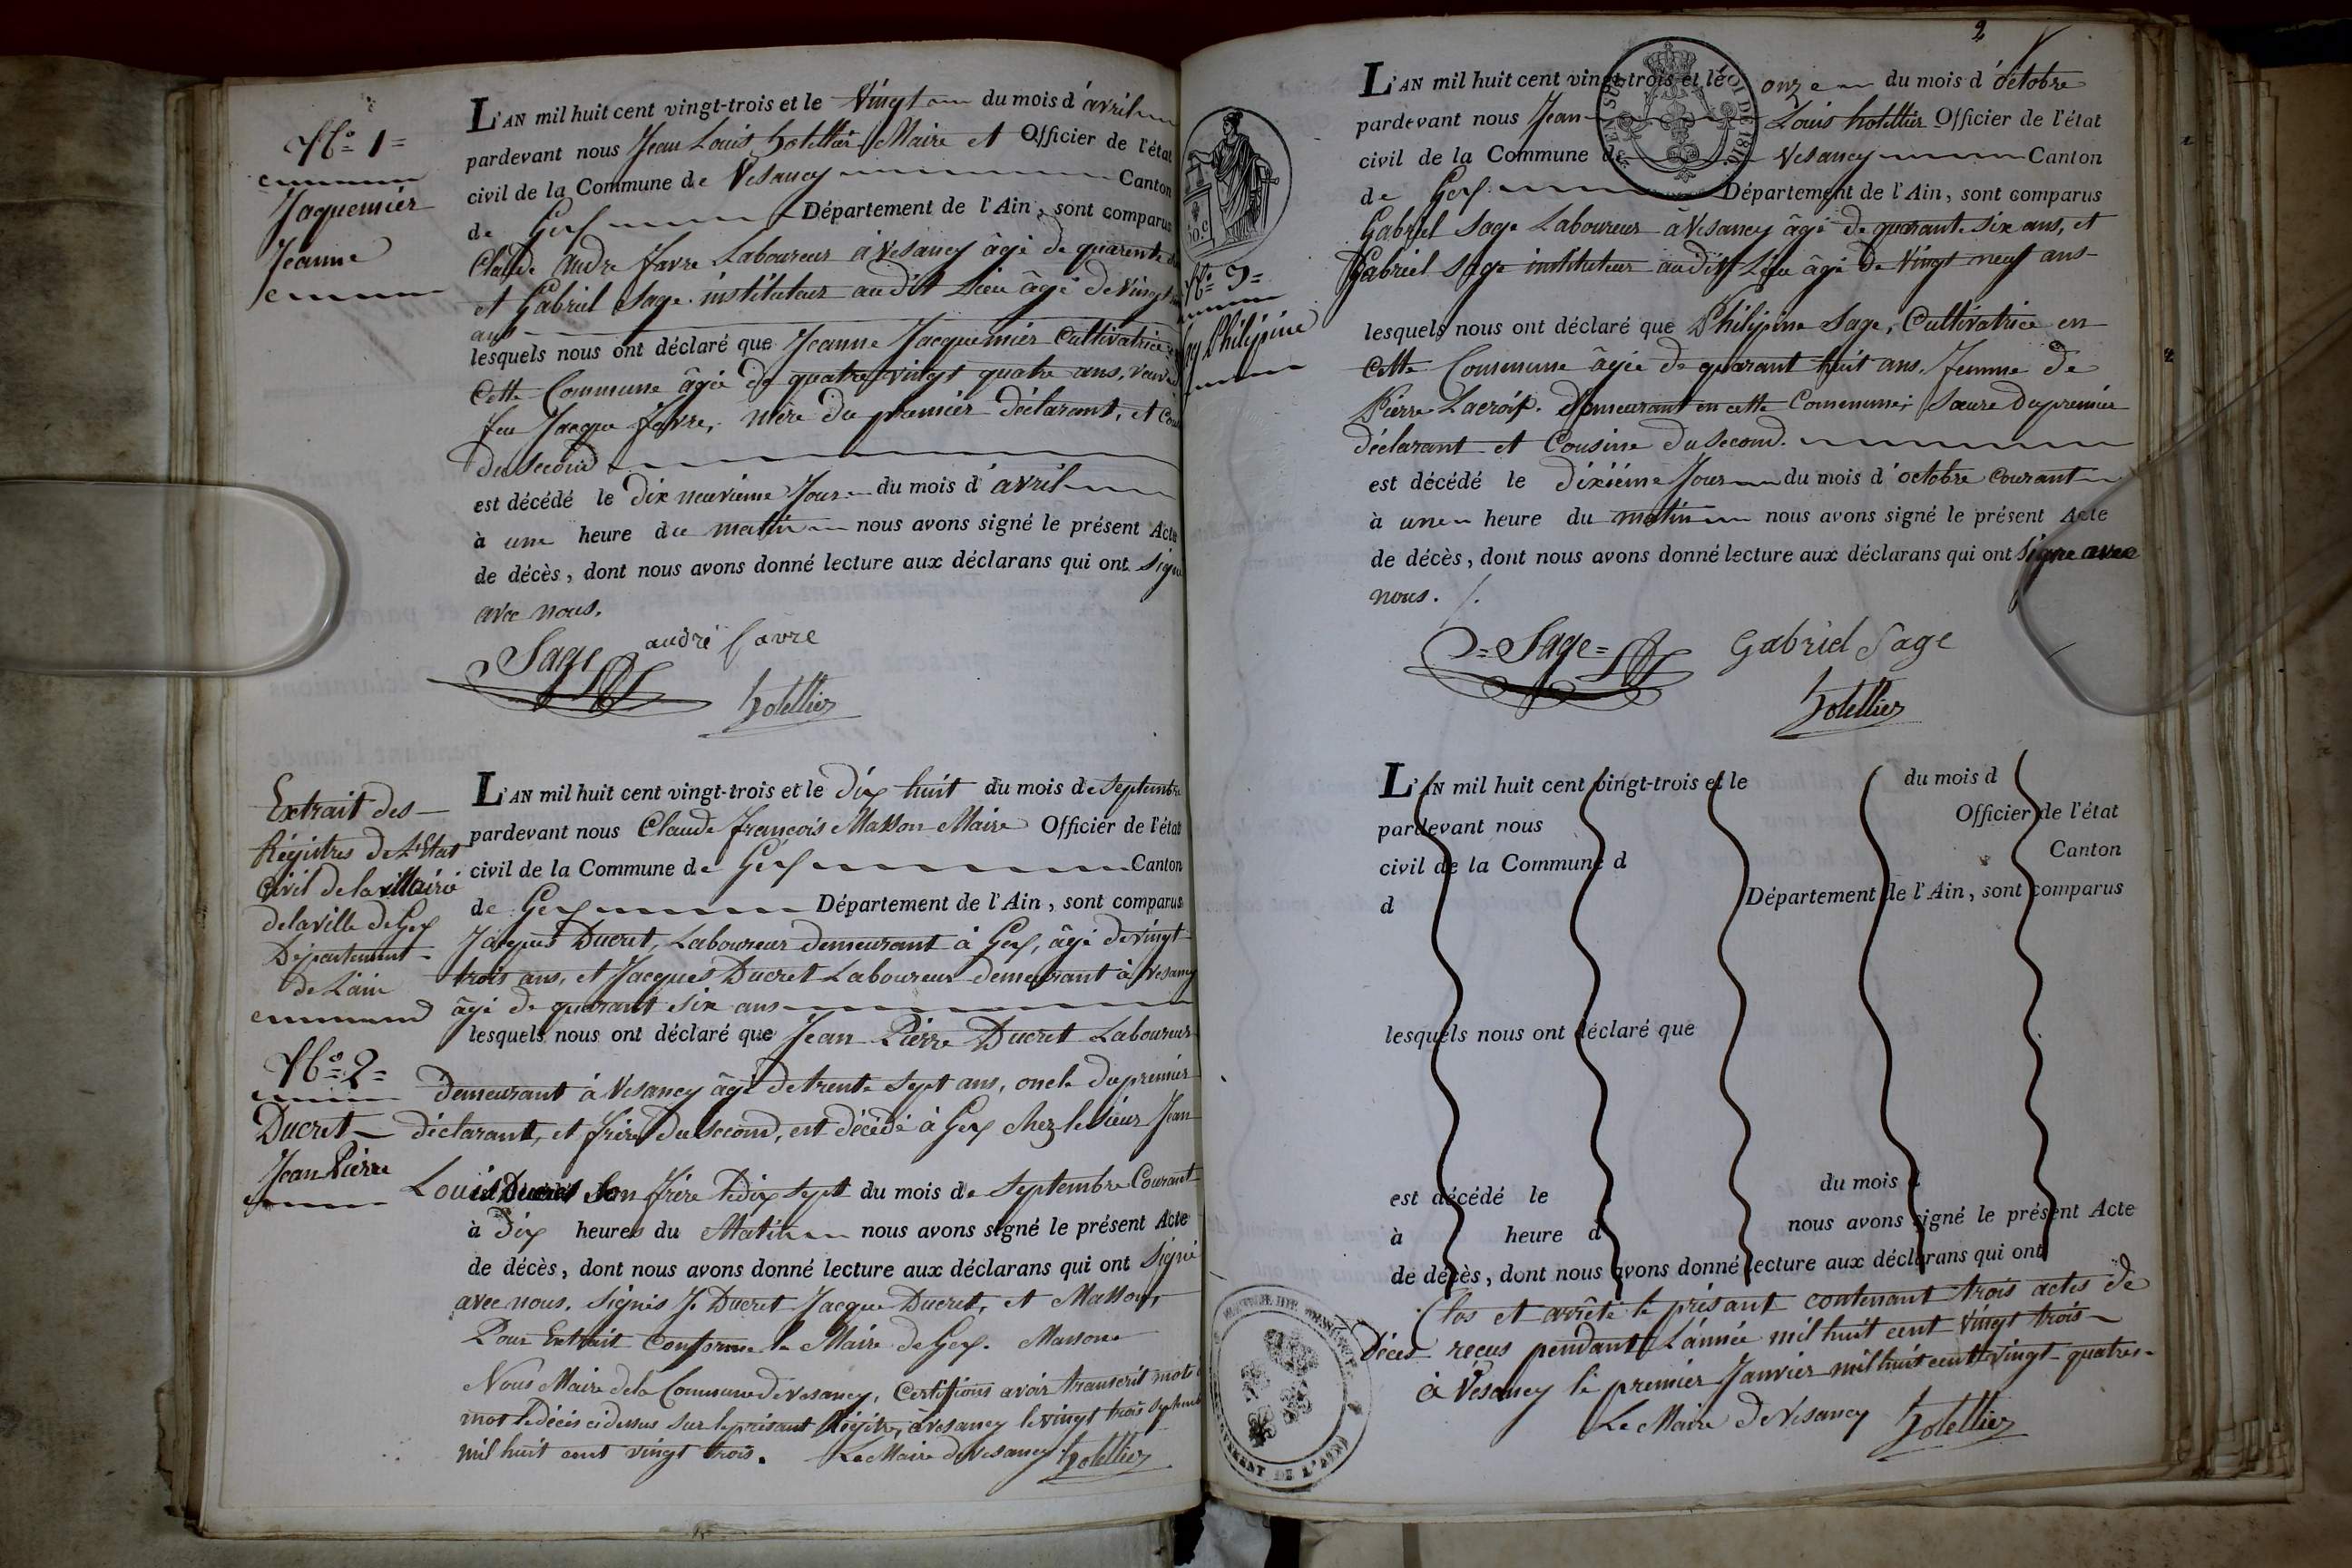 N.o 1=
Jaquemier
Jeanne
L'AN mil huit cent vingt-trois et le Vingt du mois d'avril
pardevant nous Jean Louis hotellier Maire et Officier de l'état
civil de la Commune de Vesancy Canton
de Gex Département de l'Ain, sont comparus
Claude andre favre Laboureur à Vesancy âgé de quarente
et Gabriel Sage instituteur audit Lieu âgé de Vingt
ans
lesquels nous ont déclaré que Jeanne Jacquemier Cultivatrice
Cette Commune âgée de quatre vingt quatre ans, veuve
feu Jacque favre, mère du premier déclarant, et
du second
est décédé le dix neuvieme Jour du mois d'avril
à une heure du matin nous avons signé le présent Acte
de décès, dont nous avons donné lecture aux déclarans qui ont signé
avec nous.
Sage andré favre
hotellier
Extrait des
Régistres de L'Etat
Civil de la Mairie
de la ville de Gex
Département
de L'ain
N.o 2=
Ducret
Jean Pierre
L'AN mil huit cent vingt-trois et le dix huit du mois de Septembre
pardevant nous Claude françois Masson Maire Officier de l'état
civil de la Commune de Gex Canton
de Gex Département de l'Ain, sont comparus
Jacques Ducret, Laboureur demeurant à Gex, âgé de vingt
trois ans, et Jacques Ducret Laboureur demeurant à Vesancy
âgé de quarant six ans
lesquels nous ont déclaré que Jean Pierre Ducret Laboureur
demeurant à Vesancy âgé de trente sept ans, oncle du premier
déclarant, et frère du second, est décédé à Gex chez le sieur Jean
Louis Ducret Son frère le dix sept du mois de Septembre Courant
à dix heures du Matin nous avons signé le présent Acte
de décès, dont nous avons donné lecture aux déclarans qui ont signé
avec nous. Signés J. Ducret Jacque Ducret, et Masson,
Pour Extrait Conforme le Maire de Gex. Masson
Nous Maire de la Commune de Vesancy, Certifions avoir transcrit mot
mot le décès ci dessus sur le présant Régitre, à Vesancy le vingt trois Septembre
mil huit cent vingt trois. Le Maire de Vesancy hotellier
2
L'AN mil huit cent vingt-trois et le onze du mois d'octobre
pardevant nous Jean Louis hotellier Officier de l'état
civil de la Commune de Vesancy Canton
de Gex Département de l'Ain, sont comparus
Gabriel Sage Laboureur à Vesancy âgé de quarante six ans, et
Gabriel Sage instituteur audit Lieu âgé de Vingt neuf ans
10.c
N.o 3=
Philipine
lesquels nous ont déclaré que Philipine Sage, Cultivatrice en
Cette Commune âgée de quarant huit ans, femme de
Pierre Lacroix. demeurant en cette Commune; Sœure du premier
déclarant et Cousine du second.
est décédé le dixiéme Jour du mois d'octobre courant
à une heure du matin nous avons signé le présent Acte
de décès, dont nous avons donné lecture aux déclarans qui ont signe avec
nous.
=Sage= Gabriel Sage
hotellier
L'AN mil huit cent vingt-trois et le du mois d
pardevant nous Officier de l'état
civil de la Commune d Canton
d Département de l'Ain, sont comparus
lesquels nous ont déclaré que
est décédé le du mois d
à heure d nous avons signé le présent Acte
de décès, dont nous avons donné lecture aux déclarans qui ont
Clos et arrêté le présant contenant trois actes de
Décès reçus pendant L'année mil huit cent vingt trois
à Vésancy le premier Janvier mil huit cent vingt quatre
Le Maire de Vesancy hotellier